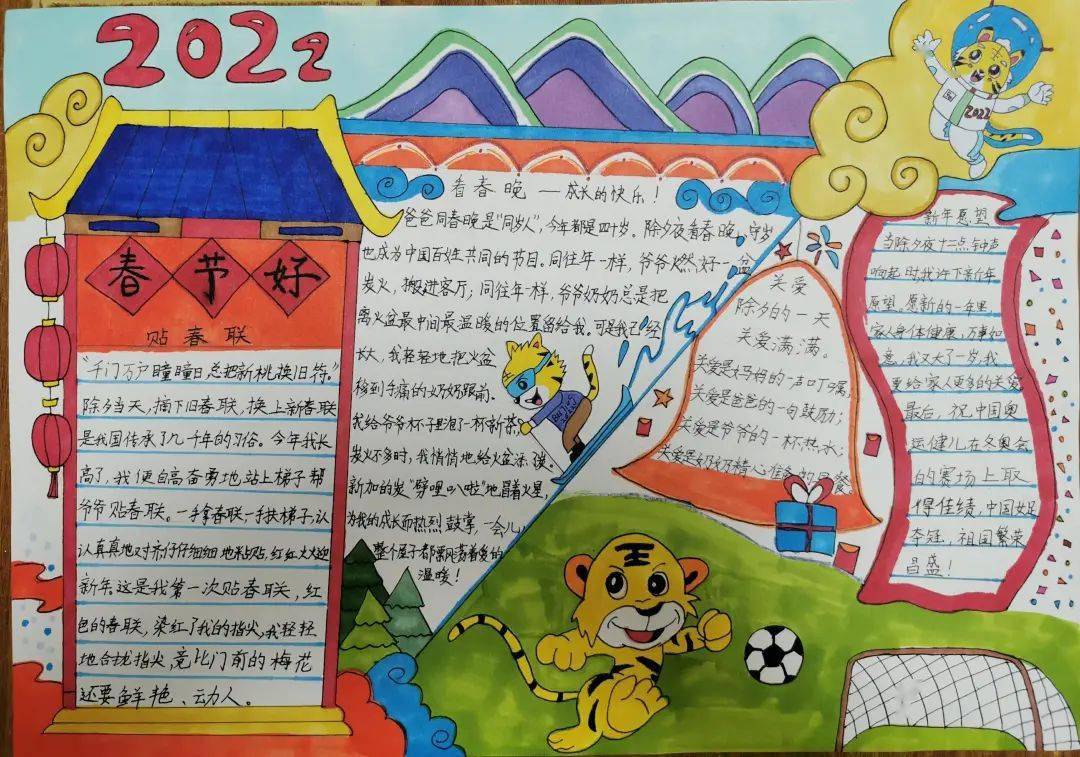 2022
春节好
贴春联
“千门万户曈曈日,总把新桃换旧符。”
除夕当天,摘下旧春联,换上新春联
是我国传承了几千年的习俗。今年我长
高了,我便自高奋勇地站上梯子帮
爷爷贴春联。一手拿春联,一手扶梯子,认
认真真地对齐仔仔细细地粘贴,红红火火迎
新年。这是我第一次贴春联,红
色的春联,染红了我的指尖,我轻轻
地合拢指尖,竟比门前的梅花
还要鲜艳、动人。
看春晚—成长的快乐!
爸爸同春晚是“同岁人”,今年都是四十岁。除夕夜看春晚,守岁
也成为中国百姓共同的节目。同往年一样,爷爷燃好一盆
炭火,搬进客厅;同往年一样,爷爷奶奶总是把
离火盆最中间最温暖的位置留给我。可是我已经
长大,我轻轻地把火盆
移到手痛的奶奶跟前。
我给爷爷杯子里泡了一杯新茶,
炭火不多时,我悄悄地给火盆添炭。
新加的炭“劈哩叭啦”地冒着火星,
为我的成长而热烈鼓掌,一会儿
整个屋子都飘荡着爱的
温暖!
关爱
除夕的一天
关爱满满。
关爱是妈妈的一声叮嘱,
关爱是爸爸的一句鼓励;
关爱是爷爷的一杯热水;
关爱是奶奶精心准备的
2022
新年愿望
当除夕夜十二点钟声
响起时,我许下新年
愿望。愿新的一年里,
家人身体健康,万事如
意,我又大了一岁,我
要给家人更多的关爱
最后,祝中国奥
运健儿在冬奥会
的赛场上取
得佳绩,中国女足
夺冠,祖国繁荣
昌盛!
王